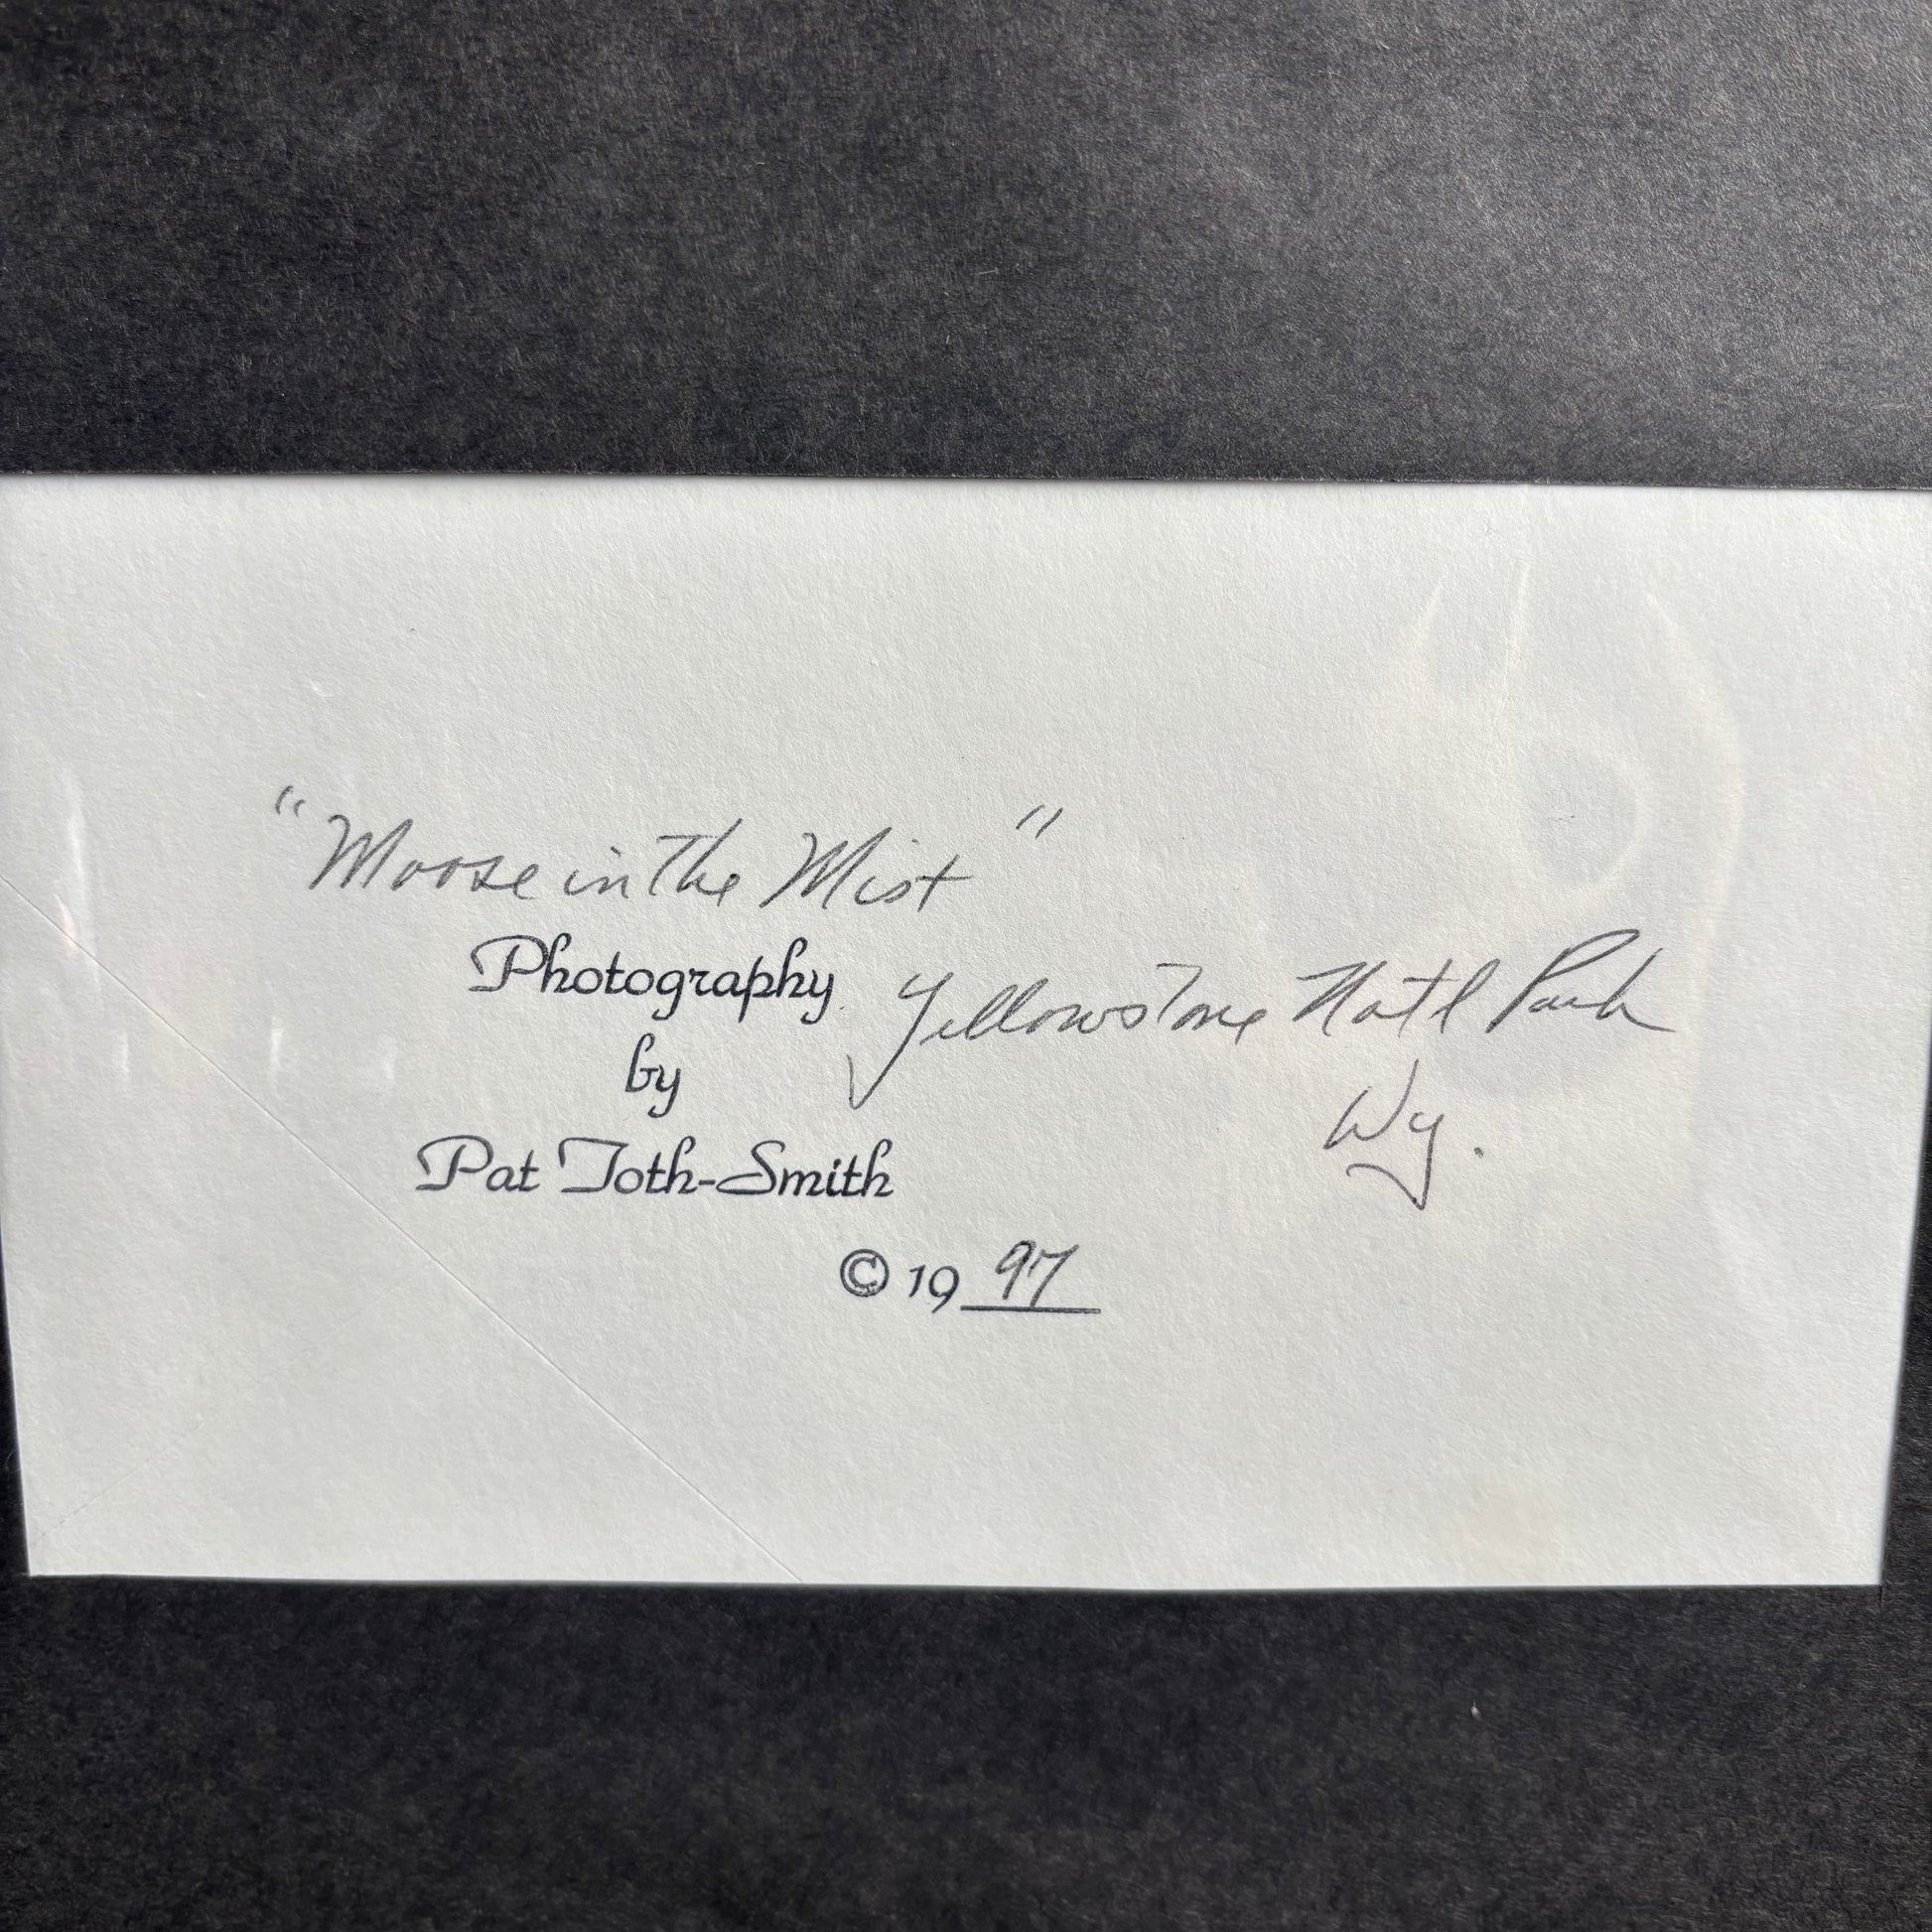 "Moose in The Mist"
Photography
Yellowstone Nat'l Park
by
Wy.
Pat Toth-Smith
© 1997